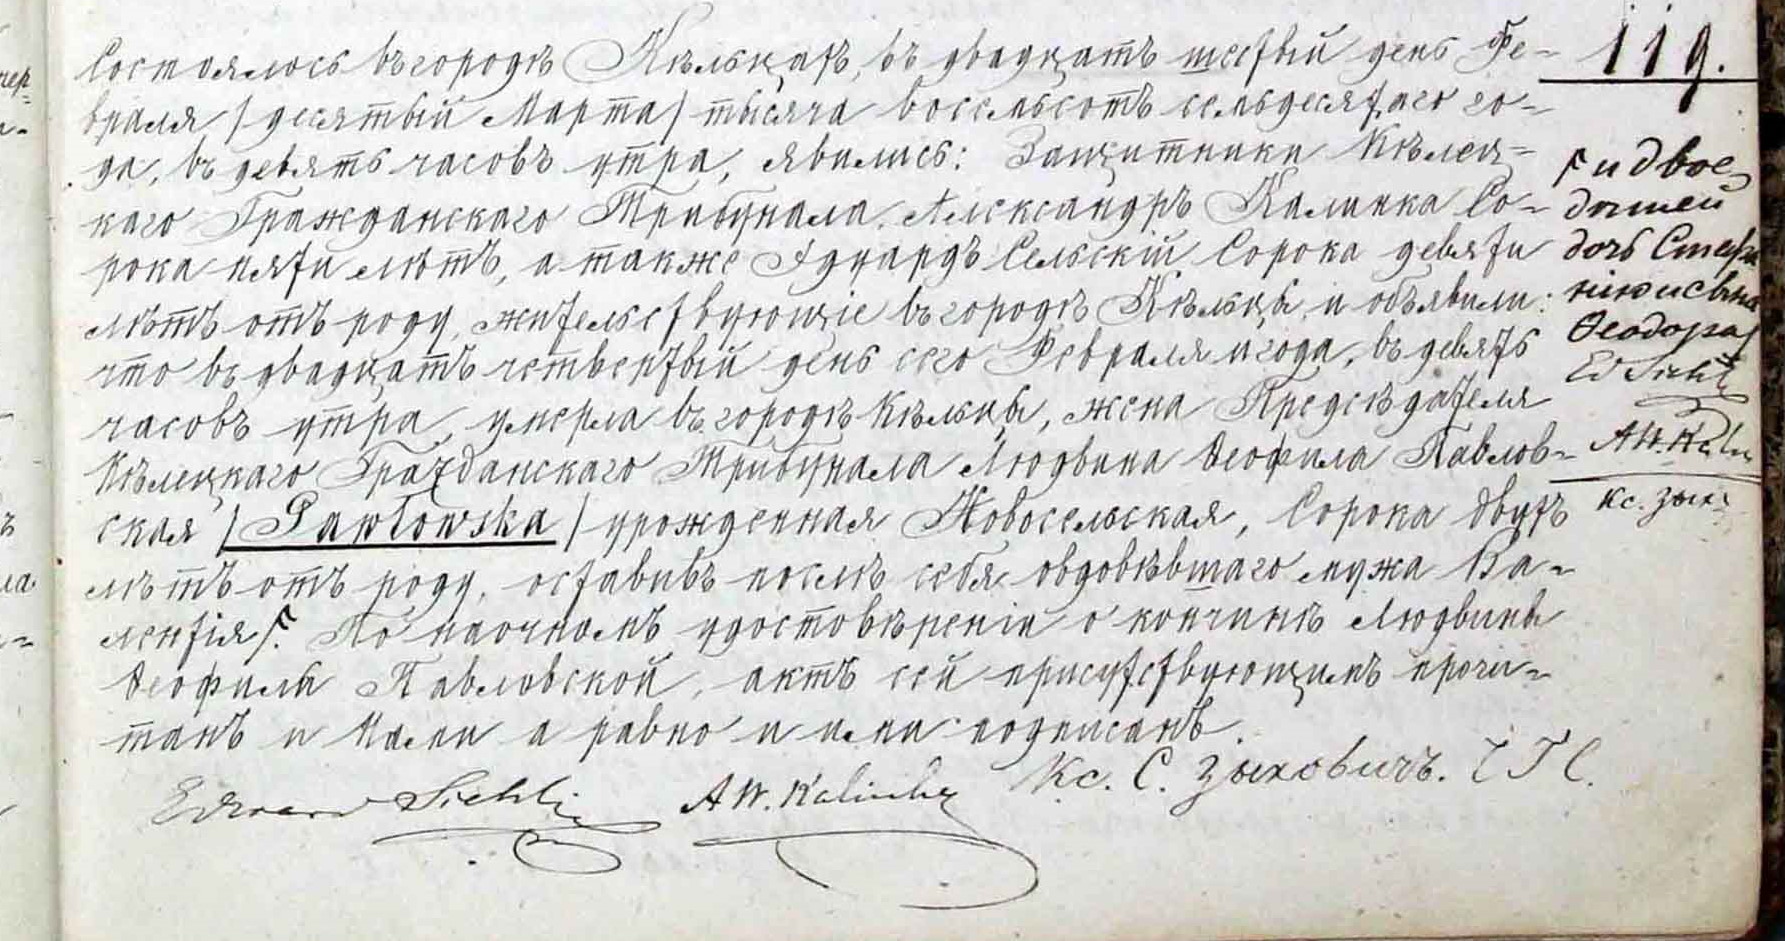 Состоялось въ городѣ Кѣльцахъ, въ двадцать шестый день Фе-
враля /десятый Марта/ тысяча восемьсотъ семьдесятаго го-
да, въ девять часовъ утра, явились: Защитники Кѣлец-
каго Гражданскаго Трибунала, Александръ Калинка Со-
рока пяти лѣтъ, а также Эдуардъ Сельскій Сорока девяти
лѣтъ отъ роду, жительствующіе въ городѣ Кѣльцы, и объявили:
что въ двадцать четвертый день сего Февраля и года, въ девять
часовъ утра, умерла въ городѣ Кѣльцы, жена Предсѣдателя
Кѣлецкаго Гражданскаго Трибунала Людвина Ѳеофила Павлов-
ская /Pawłowska/ урожденная Новосельская, Сорока двухъ
лѣтъ отъ роду, оставивъ послѣ себя овдовѣвшаго мужа Ва-
лентія/. По наочномъ удостовѣреніи о кончинѣ Людвины
Ѳеофилы Павловской, актъ сей присутствующимъ прочи-
танъ и Нами а равно и ими подписанъ.
A W. Kalinka Кс. С. Зыховичъ. Ч Г С.
119.
и двое
дѣтей
дочь
и сына
Ѳеодора/
A W. Kalin
Кс. Зых